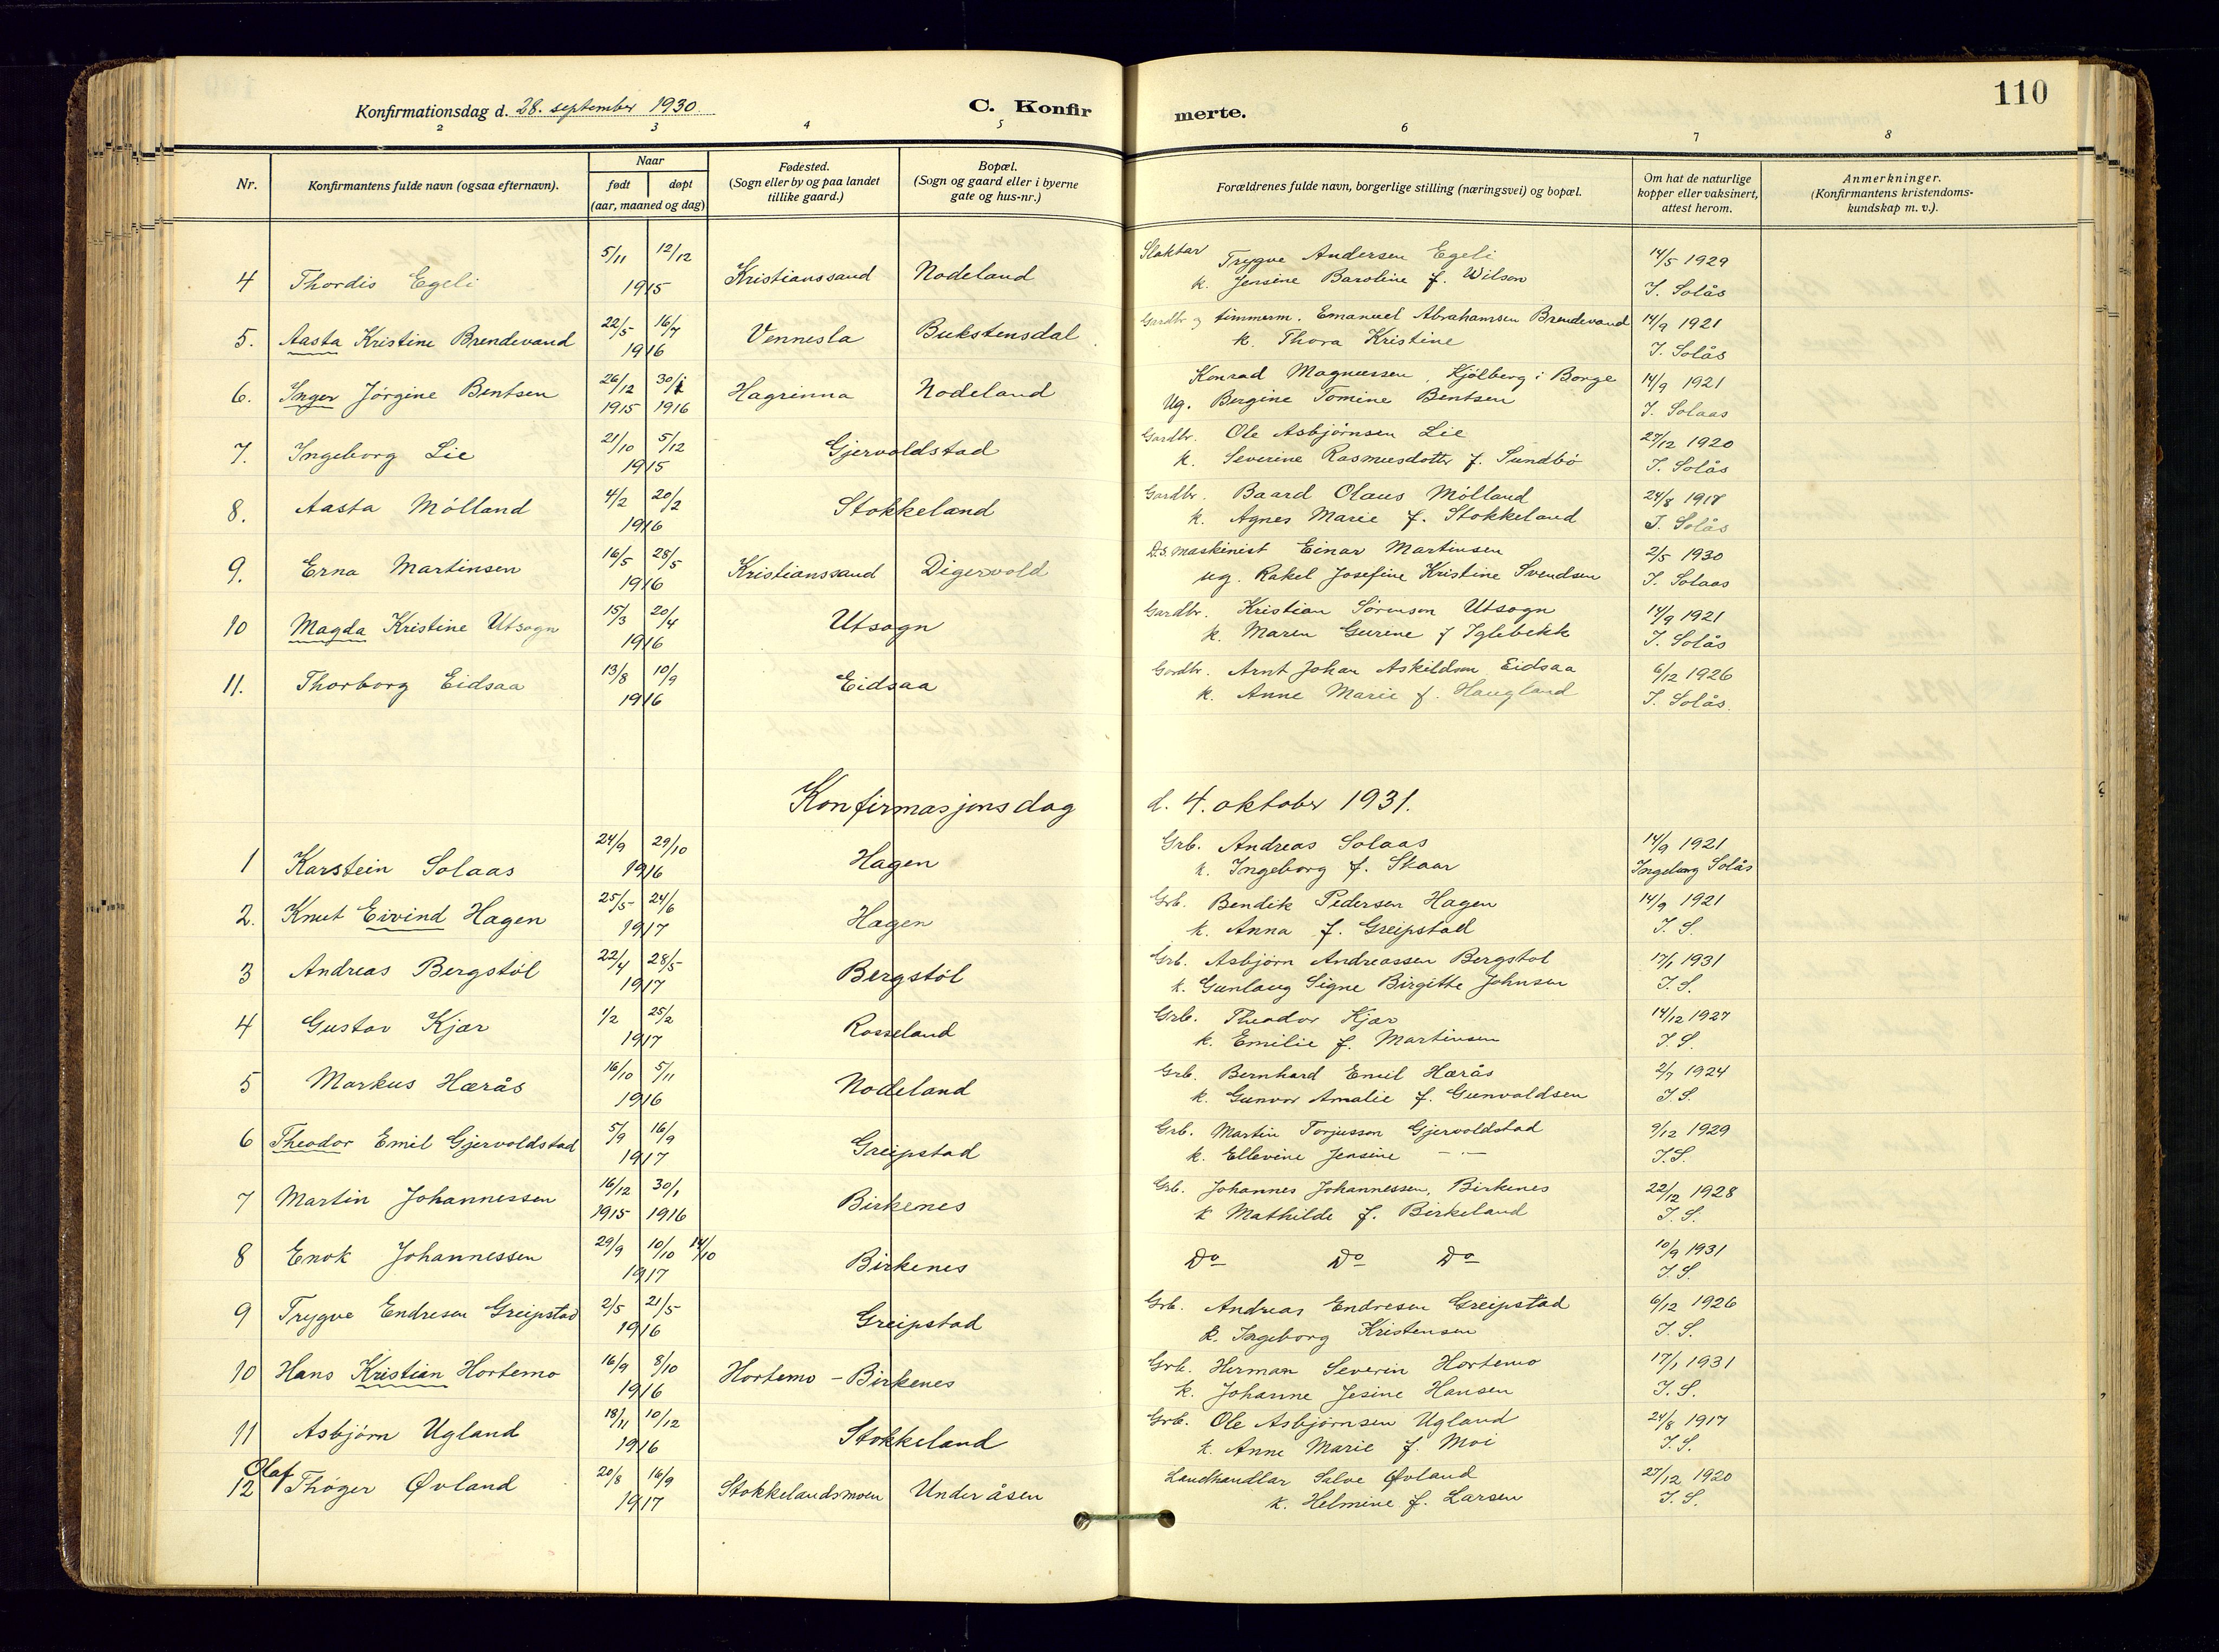 110
Konfirmationsdag d. 28. september 1930.
C. Konfirmerte.
2 3 4 5 6 7 8
Nr.
Konfirmantens fulde navn (ogsaa efternavn).
Naar
født døpt
(aar, maaned og dag)
Fødested.
(Sogn eller by og paa landet
tillike gaard.)
Bopæl.
(Sogn og gaard eller i byerne
gate og hus-nr.)
Forældrenes fulde navn, borgerlige stilling (næringsvei) og bopæl.
Om hat de naturlige
kopper eller vaksinert,
attest herom.
Anmerkninger.
(Konfirmantens kristendoms-
kundskap m. v.).
4 Thordis Egeli 5/11 12/12 1915 Kristianssand Nodeland Slaktar Trygve Andersen Egeli 14/5 1929
k. Jensine Baroline f. Wilson I. Solås
5. Aasta Kristine Brendevand 22/5 16/7 1916 Vennesla Bukstensdal Gardbr. og timmerm. Emanuel Abrahamsen Brendevand 14/9 1921
k. Thora Kristine I. Solås
6. Inger Jørgine Bentsen 26/12 1915 30/1 1916 Hagrinna Nodeland Konrad Magnussen, Kjølberg i Borge 14/9 1921
Ug. Bergine Tomine Bentsen I. Solaas
7. Ingeborg Lie 21/10 5/12 1915 Gjervoldstad Gardbr. Ole Asbjørnsen Lie 27/12 1920
k. Severine Rasmusdotter f. Sundbø I. Solås
8. Aasta Mølland 4/2 20/2 1916 Stokkeland Gardbr. Baard Olaus Mølland 24/8 1917
k. Agnes Marie f. Stokkeland I. Solås
9. Erna Martinsen 16/5 28/5 1916 Kristianssand Digervold D.s. maskinist Einar Martinsen 2/5 1930
ug. Rakel Josefine Kristine Svendsen I. Solaas
10 Magda Kristine Utsogn 15/3 20/4 1916 Utsogn Gardbr. Kristian Sørenson Utsogn 14/9 1921
k. Maren Gurene f Iglebekk I. Solås
11. Thorborg Eidsaa 13/8 10/9 1916 Eidsaa Gardbr. Arnt Johan Askildsen Eidsaa 6/12 1926
k. Anne Marie f. Haugland I. Solås.
Konfirmasjonsdag d. 4. oktober 1931.
1 Karstein Solaas 24/9 29/10 1916 Hagen Grb. Andreas Solaas 14/9 1921
k. Ingeborg f. Skaar Ingeborg Solås
2. Knut Eivind Hagen 25/5 24/6 1917 Hagen Grb. Bendik Pedersen Hagen 14/9 1921
k. Anna f. Greipstad I. S.
3 Andreas Bergstøl 22/4 28/5 1917 Bergstøl Grb. Asbjørn Andreassen Bergstøl 17/1 1931
k. Gunlaug Signe Birgitte Johnsen I. S.
4 Gustav Kjær 1/2 25/2 1917 Rosseland Grb. Theodor Kjær 14/12 1927
k. Emilie f. Martinsen I. S.
5 Markus Hærås 16/10 5/11 1916 Nodeland Grb. Bernhard Emil Hærås 2/7 1924
k. Gunvor Amalie f. Gunvaldsen I. S.
6 Theodor Emil Gjervoldstad 5/9 16/9 1917 Greipstad Grb. Martin Torjusson Gjervoldstad 9/12 1929
k. Ellevine Jensine — " — I. S.
7 Martin Johannessen 16/12 1915 30/1 1916 Birkenes Grb. Johannes Johannessen, Birkenes 22/12 1928
k Mathilde f. Birkeland I. S.
8 Enok Johannessen 29/9 10/10 14/10 1917 Birkenes Do Do Do 10/9 1931
I. S.
9 Trygve Endresen Greipstad 2/5 21/5 1916 Greipstad Grb. Andreas Endresen Greipstad 6/12 1926
k. Ingeborg Kristensen I. S.
10 Hans Kristian Hortemo 16/9 8/10 1916 Hortemo - Birkenes Grb. Herman Severin Hortemo 17/1 1931
k. Johanne Jesine Hansen I. S.
11 Asbjørn Ugland 18/11 10/12 1916 Stokkeland Grb. Ole Asbjørnsen Ugland 24/8 1917
k. Anne Marie f. Moi I. S.
12 Olaf Thøger Øvland 20/8 16/9 1917 Stokkelandsmoen Under åsen Landhandlar Salve Øvland 27/12 1920
k. Helmine f. Larsen I. S.